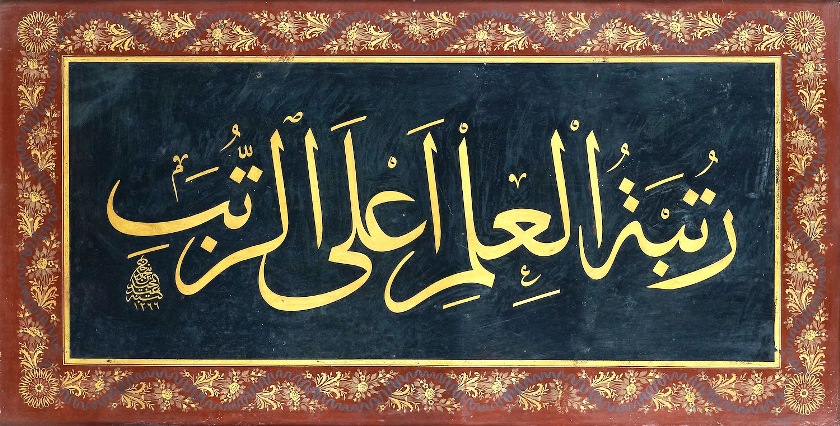 رُتْبَةُ الْعِلْمِ اَعْلَى الرُّتَبِ
١٣٦٦